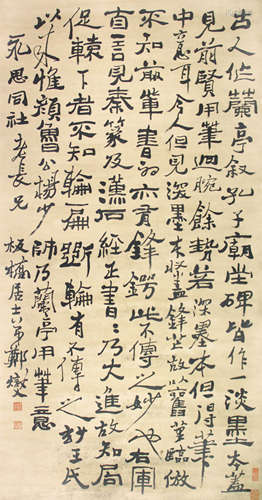 古人作蘭亭叙孔子廟堂碑皆作一淡墨本盖
見前賢用筆迴腕餘勢若深墨本但得筆
中意耳今人但見深墨本收盖鋒芒故以舊筆臨倣
不知前輩書初亦有鋒鍔此不傳之妙也右軍
自言見秦篆及漢石經正書書乃大進故知局
促轅下者不知輪扁斲輪有不傳之妙王氏
以來惟顔魯公楊少師乃蘭亭用筆意
永思同社老長兄 板橋居士弟鄭燮